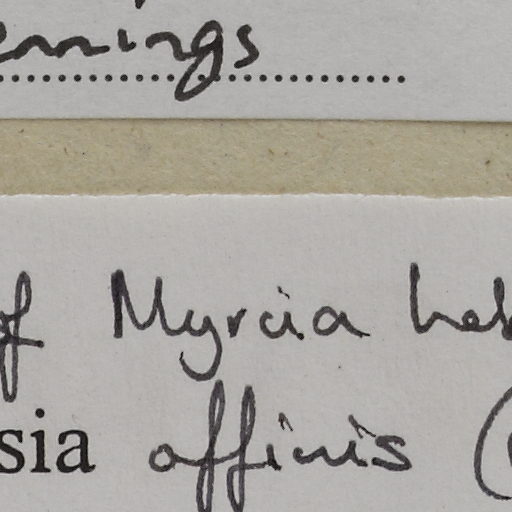 ennings
of Myrcia heb
sia affinis (